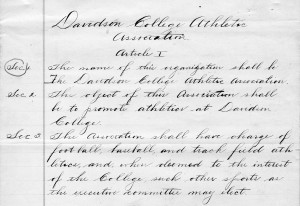 Davidson College Athletic
Association
Article I
Sec 1 The name of this organization shall be
The Davidson College Athletic Association.
Sec 2 The object of this Association shall
be to promote athletics at Davidson
College.
Sec 3 This Association shall have charge of
football, baseball and track field ath-
letics, and, when deemed to the interest
of the College, such other sports as
the executive committee may elect